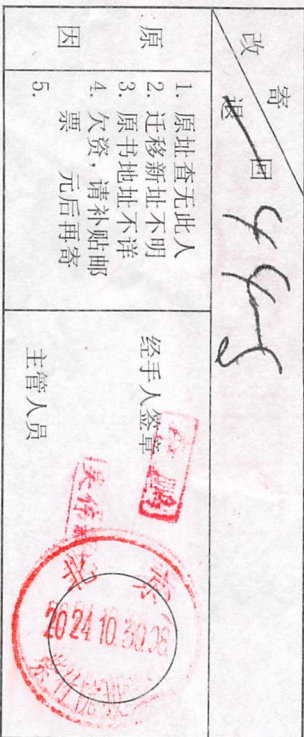 改寄
退回 445
原因
1. 原址查无此人
2. 迁移新址不明
3. 原书地址不详
4. 欠资，请补贴邮
票 元后再寄
5.
经手人签章
主管人员
北京
2024 10.30.08